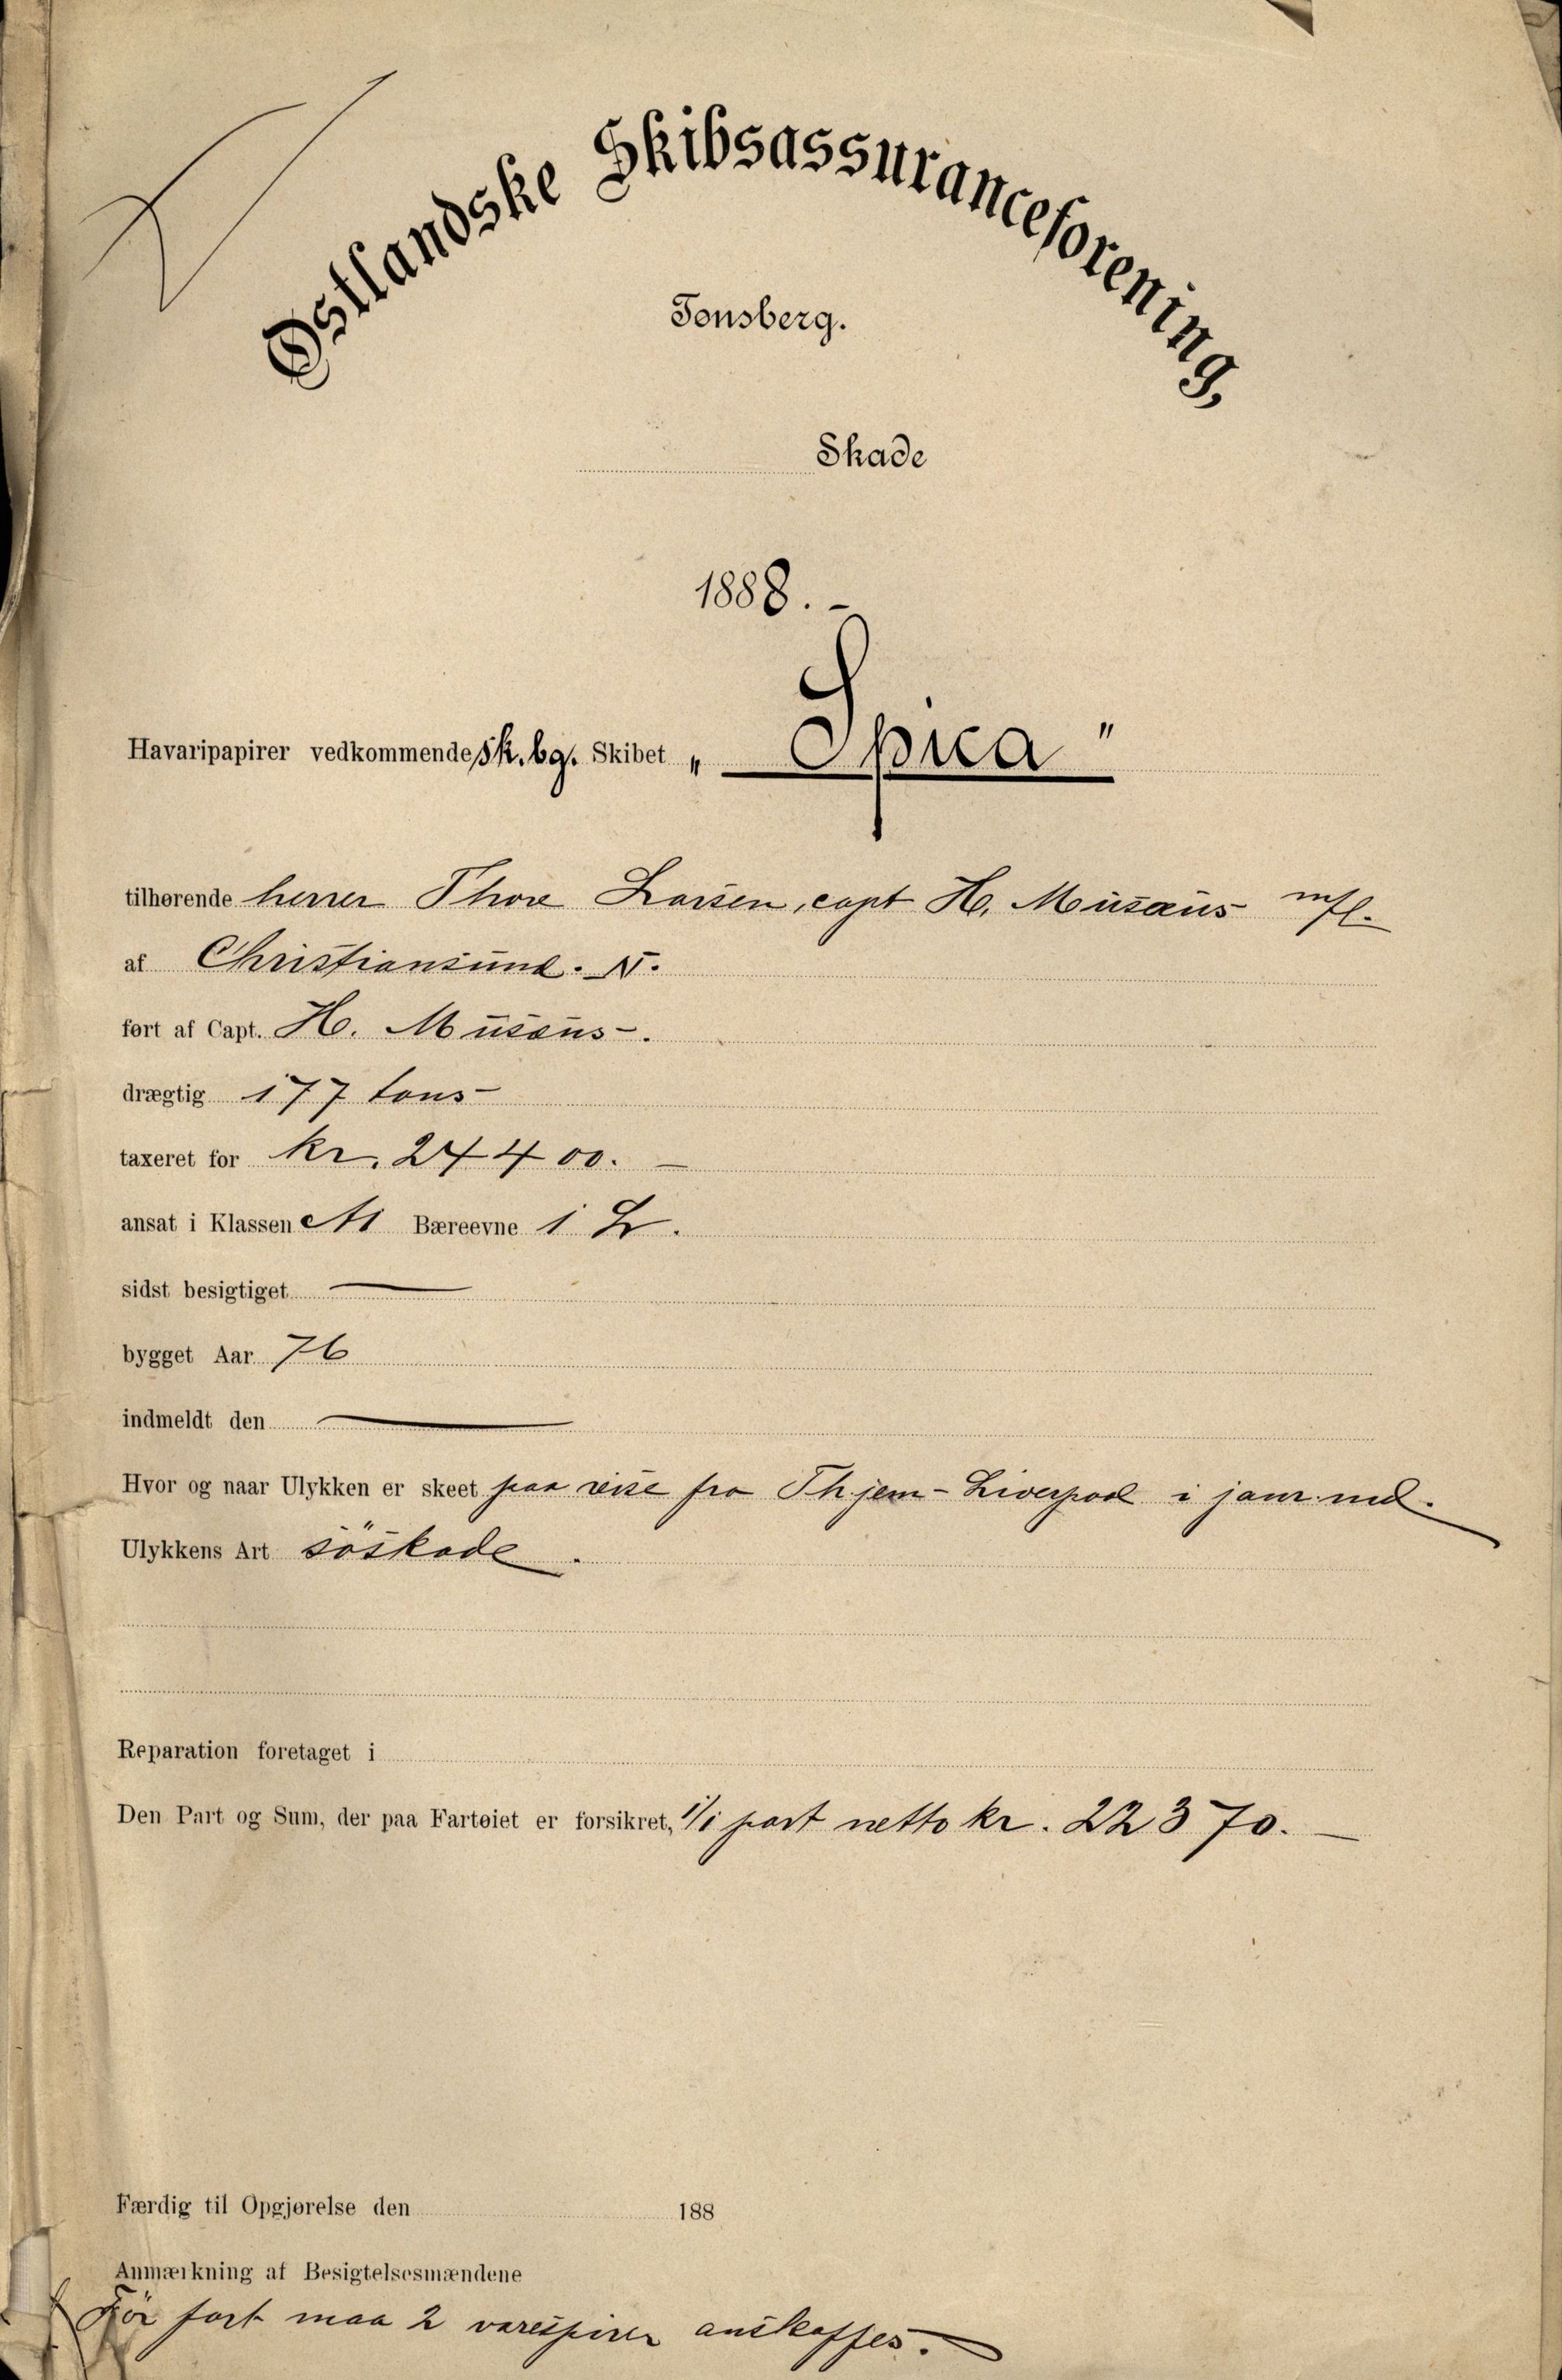 Østlandske Skibsassuranceforening,
Tønsberg.
Skade
1888. -
Havaripapirer vedkommende sk. bg. Skibet „Spica"
tilhørende herrer Thore Larsen, capt H. Müsæus mfl.
af Christiansund. N.
ført af Capt. H. Müsæus -.
drægtig 177 tons
taxeret for kr. 24400. -
ansat i Klassen A1 Bæreevne 1 L.
sidst besigtiget —
bygget Aar 76
indmeldt den —
Hvor og naar Ulykken er skeet paa reise fra Thjem - Liverpool i janr. md.
Ulykkens Art söskade.
Reparation foretaget i
Den Part og Sum, der paa Fartøiet er forsikret, 1/1 part netto kr. 22370. -
Færdig til Opgjørelse den 188
Anmærkning af Besigtelsesmændene
Før fart maa 2 varespirer anskaffes.